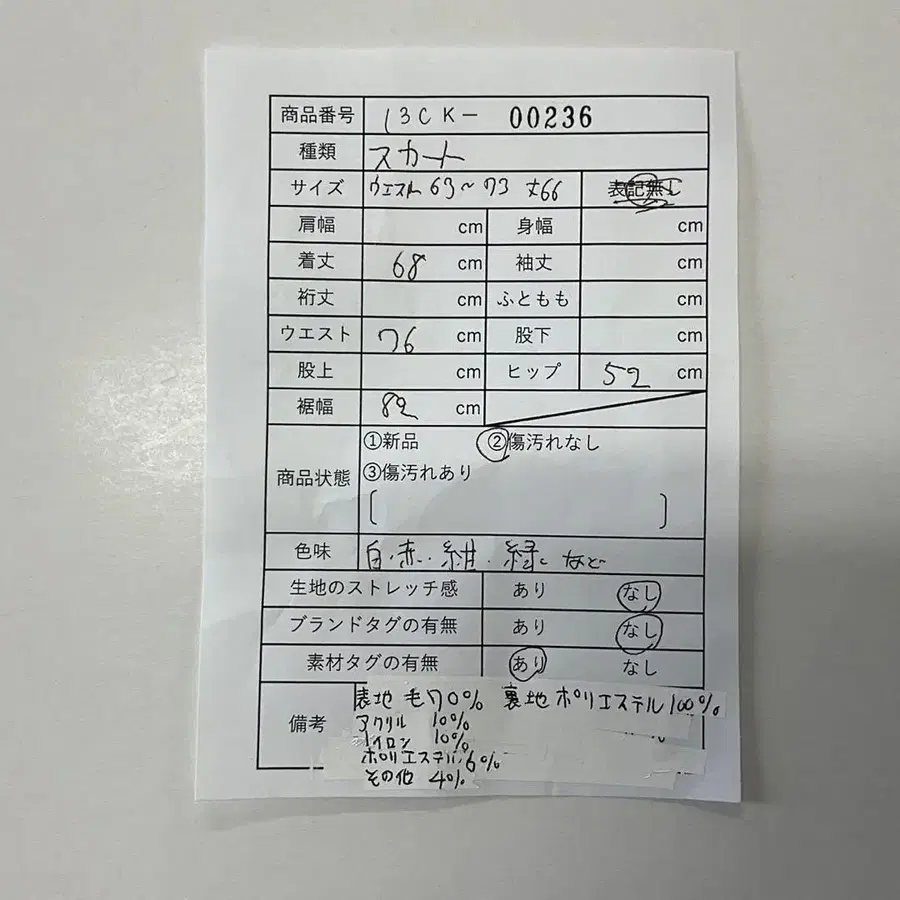 商品番号 13CK- 00236
種類 スカート
サイズ ウエスト63~73 丈66 表記無し
肩幅 cm 身幅 cm
着丈 68 cm 袖丈 cm
裄丈 cm ふともも cm
ウエスト 76 cm 股下 cm
股上 cm ヒップ 52 cm
裾幅 82 cm
商品状態 ①新品 ②傷汚れなし
③傷汚れあり
[ ]
色味 白・赤・紺・緑 など
生地のストレッチ感 あり なし
ブランドタグの有無 あり なし
素材タグの有無 あり なし
備考 表地 毛70% 裏地 ポリエステル100%
アクリル 10%
ナイロン 10%
ポリエステル 6%
その他 4%